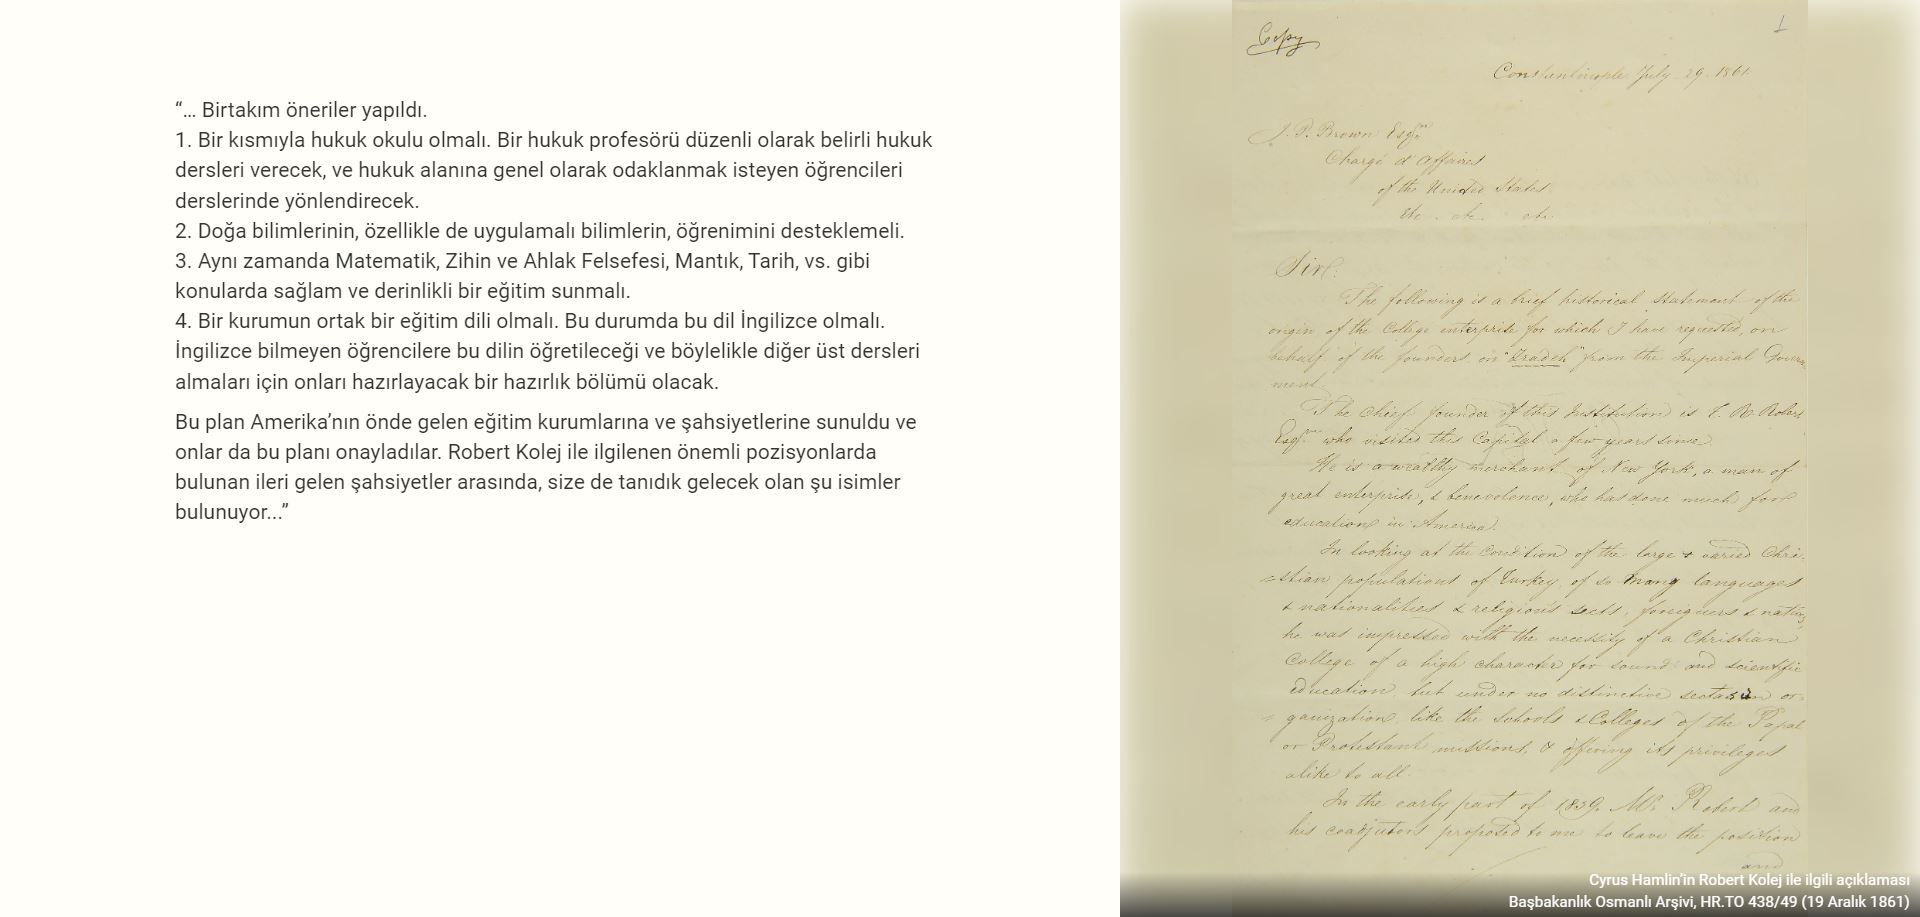 “... Birtakım öneriler yapıldı.
1. Bir kısmıyla hukuk okulu olmalı. Bir hukuk profesörü düzenli olarak belirli hukuk
dersleri verecek, ve hukuk alanına genel olarak odaklanmak isteyen öğrencileri
derslerinde yönlendirecek.
2. Doğa bilimlerinin, özellikle de uygulamalı bilimlerin, öğrenimini desteklemeli.
3. Aynı zamanda Matematik, Zihin ve Ahlak Felsefesi, Mantık, Tarih, vs. gibi
konularda sağlam ve derinlikli bir eğitim sunmalı.
4. Bir kurumun ortak bir eğitim dili olmalı. Bu durumda bu dil İngilizce olmalı.
İngilizce bilmeyen öğrencilere bu dilin öğretileceği ve böylelikle diğer üst dersleri
almaları için onları hazırlayacak bir hazırlık bölümü olacak.
Bu plan Amerika’nın önde gelen eğitim kurumlarına ve şahsiyetlerine sunuldu ve
onlar da bu planı onayladılar. Robert Kolej ile ilgilenen önemli pozisyonlarda
bulunan ileri gelen şahsiyetler arasında, size de tanıdık gelecek olan şu isimler
bulunuyor...”
Copy
1
Constantinople July 29. 1861
J. P. Brown Esqre
Chargé d'affaires
of the United States
etc. etc. etc.
Sir:
The following is a brief historical statement of the
origin of the College enterprise for which I have requested, on
behalf of the founders an "Iradeh" from the Imperial Govern
ment.
The chief founder of this Institution is C. R. Robert
Esqre who visited this Capital a few years since.
He is a wealthy merchant of New York, a man of
great enterprise, & benevolence, who has done much for
education in America.
In looking at the condition of the large & varied Chri-
=stian populations of Turkey, of so many languages
& nationalities & religious sects, foreigners & natives,
he was impressed with the necessity of a Christian
College of a high character for sound and scientific
education, but under no distinctive sectarian or-
=ganization, like the Schools & Colleges of the Papal
or Protestant missions, & offering its privileges
alike to all.
In the early part of 1859. Mr. Robert and
his coadjutors proposed to me to leave the position
and
Cyrus Hamlin’in Robert Kolej ile ilgili açıklaması
Başbakanlık Osmanlı Arşivi, HR.TO 438/49 (19 Aralık 1861)